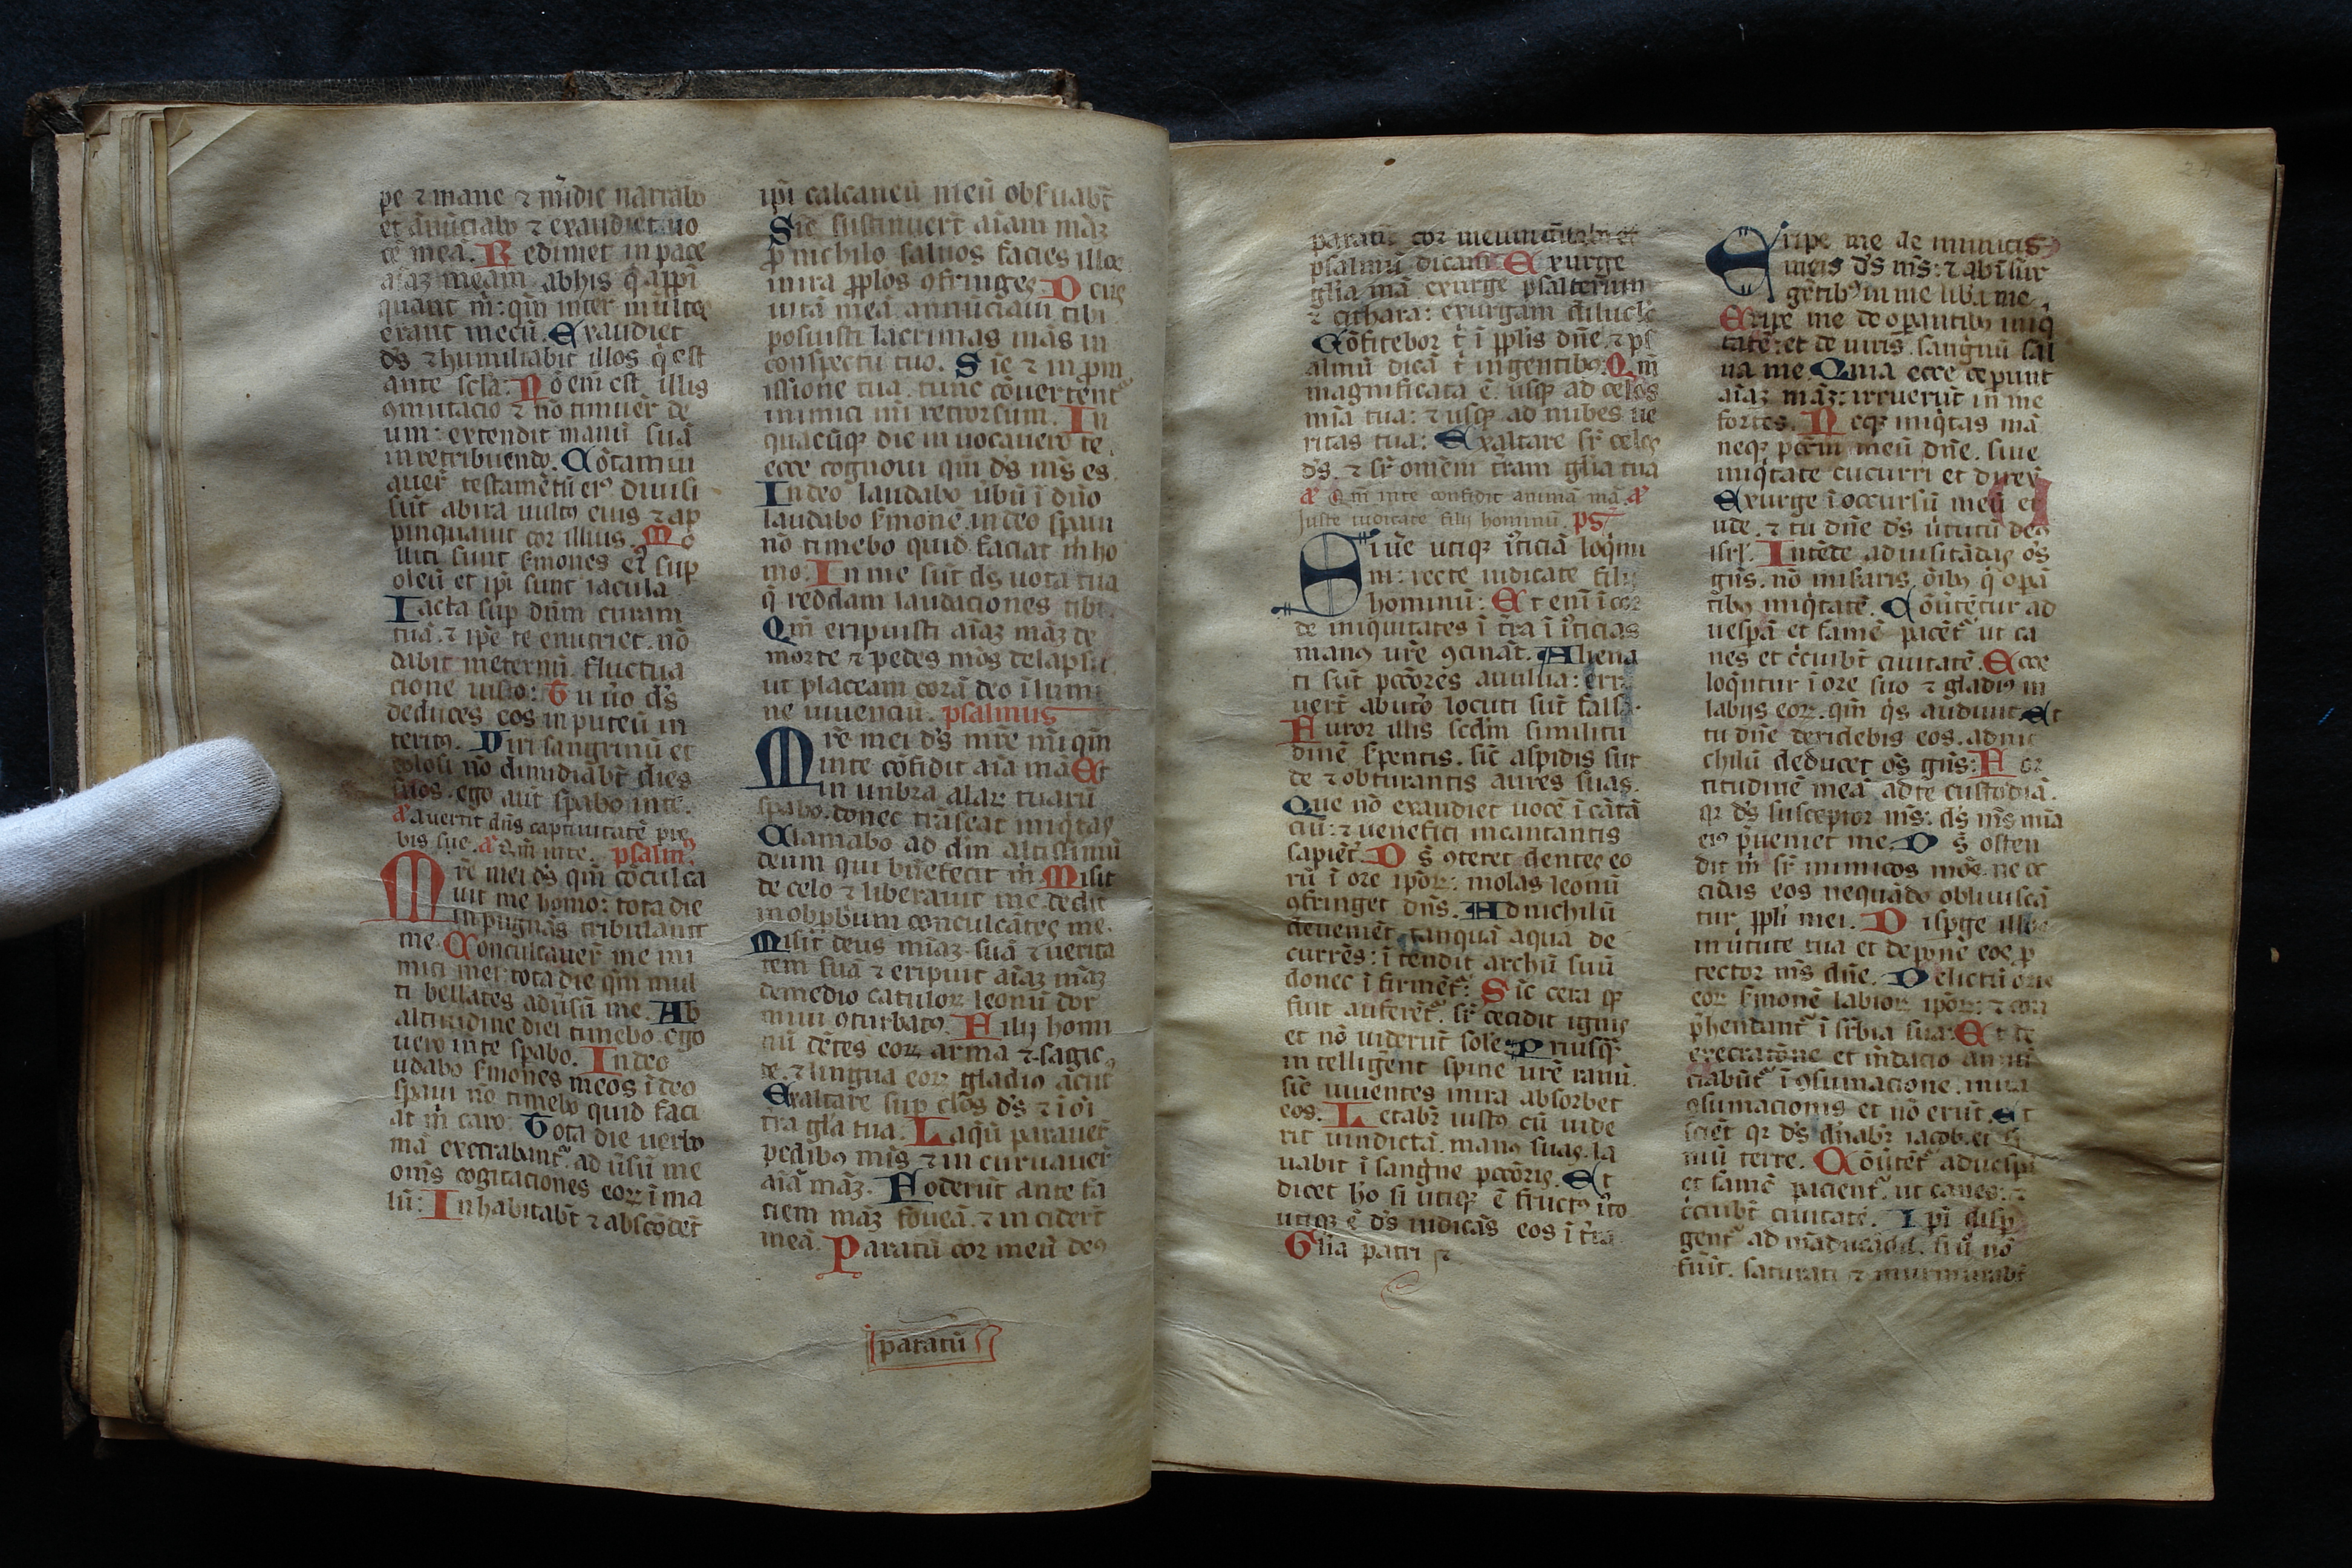 pe ⁊ mane ⁊ m̄die narrabo
et ān̄ūciabo ⁊ exaudiet uo
cē meā. Redimet in pace
aīaz meam abhis q̄ appi
quant m̄: qm̄ inter multos
erant mecū. Exaudiet
ds̄ ⁊ humiliabit illos q̄ est
ante scl̄a: Nō em̄ est illis
ꝯmutacio ⁊ nō timuer̄ de
um: extendit manū suā
in retribuendo. Cōtamin
auer̄ testamētū eiꝰ diuisi
sūt ab ira uultꝰ eius ⁊ ap
pinquauit cor illius. Mo
liti sunt s̄mones eiꝰ sup
oleū et ip̄i sunt iacula
Iacta sup dūm curam
tuā ⁊ ip̄e te enutriet. nō
dabit in eternū fluctua
cione iusto: Tu u̇o ds̄
deduces eos in puteū in
teritꝰ. Viri sanguinū et
dolosi nō dimidiabt̄ dies
suos. ego aūt sp̄abo in te.
a᷑ auertit dn̄s captiuitatē ple
bis sue. a᷑ qm̄ in te. psalmꝰ
Mrē mei ds̄ qm̄ cōculca
uit me homo: tota die
inpugnās tribulauit
me. Conculcauer̄ me ini
mici mei tota die qm̄ mul
ti bellātes adūsū me. Ab
altitudine diei timebo. ego
uero in te sp̄abo. In deo
udabo s̄mones meos ī deo
sp̄aui nō timebo quid faci
at m̄ caro: Tota die uerba
mā execrabant᷑ ad ūsū me
om̄s cogitaciones eoꝝ ī ma
lū: Inhabitabt̄ ⁊ abscōdēt
ip̄i calcaneū meū obs̄uabt̄
Sic sustinuer̄t aīam māz
ꝓ nichilo saluos facies illos
in ira ꝓplos ꝯfringes. Deus
uitā meā annūciaui tibi
posuisti lacrimas mās in
conspectu tuo. Sic ⁊ in ꝓm
issione tua tunc cōuertent᷑
inimici mi retrorsum. In
quacūqꝫ die inuocauero te
ecce cognoui qm̄ ds̄ ms̄ es
In deo laudabo ūbū ī dn̄o
laudabo s̄monē. in deo sp̄aui
nō timebo quid faciat m̄ ho
mo: In me sūt ds̄ uota tua
q̄ reddam laudaciones tibi.
Qm̄ eripuisti aīaz māz de
morte ⁊ pedes mōs de lapsu
ut placeam corā deo ī lumi
ne uiuenciū. psalmus
Mrē mei ds̄ mrē m̄i qm̄
in te cōfidit aīa mā Et
in unbra alaꝝ tuarū
sp̄abo. donec trāseat iniq̄tas
Clamabo ad dm̄ altissimū
deum qui bn̄efecit m̄. Misit
de celo ⁊ liberauit me. dedit
in obp̄bium conculcātes me.
Misit deus mīaz suā ⁊ uerita
tem suā ⁊ eripuit aīaz māz
de medio catuloꝝ leonū dor
miui ꝯturbatꝰ. Filij homi
nū dētes eoꝝ arma ⁊ sagit
te. ⁊ lingua eoꝝ gladiꝰ acut᷑
Exaltare sup cl̄os ds̄ ⁊ ī oī
tra gla tua. Laqū parauer̄
pedibꝰ mīs ⁊ in curuauer̄
aīā māz. Foderūt ante fa
ciem māz foueā. ⁊ in cider̄t
in eā. Paratū cor meū deꝰ
paratū
paratū cor meum cātabo et
psalmū dicam Exurge
glia mā exurge psalterium
⁊ cithara: exurgam diluclo
Cōfitebor t̄ ī pplis dn̄e. ⁊ ps
almū dicā t̄ in gentibꝰ. Qm̄
magnificata ē usqꝫ ad celos
mīa tua: ⁊ usqꝫ ad nubes ue
ritas tua: Exaltare sr̄ celos
ds̄. ⁊ sr̄ omēm trām glia tua
a᷑ Qm̄ in te confidit anima mā. a᷑
Juste iudicate filij hominū. ps̄
Si ūe utiqꝫ iusticiā loq̄mi
ni: recte iudicate filij
hominū: Et enī ī cor
de iniquitates ī trā ī iusticias
manꝰ urē ꝯcināt. Aliena
ti sūt pccōres auuluia: erra
uer̄t ab utō locuti sūt falsa.
Furor illis scd̄m similitu
dinē s̄pentis. sic̄ aspidis sur
de ⁊ obturantis aures suas.
Que nō exaudiet uocē ī cātā
ciū: ⁊ uenefici incantantis
sapiēt᷑. Ds̄ ꝯteret dentes eo
rū ī ore ip̄oꝝ: molas leonū
ꝯfringet dn̄s. Ad nichilū
deueniēt tanquā aqua de
currēs: ī tendit archū suū
donec ī firmēt᷑: Sic cera q̄
fluit auferēt᷑. sr̄ cecidit ignis
et nō uiderūt solē. Priusq̄
in telligent spine urē ranū.
sic̄ uiuentes in ira absorbet
eos. Letabr̄ iustꝰ cū uide
rit uindictā. manꝰ suas la
uabit ī sangne pccōris. Et
dicet hō si utiqꝫ ē fructꝰ iusto
utiqꝫ ē ds̄ iudicās eos ī trā.
Glia patri ⁊
Eripe me de inimicis
meis ds̄ ms̄: ⁊ ab īsur
gētibꝰ in me liba me
Eripe me de operantibꝰ iniq̄
tatē: et de uiris sanguinū sal
ua me. Quia ecce ceperunt
aīaz māz: irruerūt in me
fortes. Neqꝫ iniq̄tas mā
neqꝫ pccm̄ meū dn̄e. siue
iniq̄tate cucurri et direxi
Exurge ī occursū meū et
uide. ⁊ tu dn̄e ds̄ ūtutū deꝰ
isrl̄. Intēde ad uisitādas oīs
gn̄s. nō misiaris oībꝰ q̄ opā
tibꝰ iniq̄tatē. Cōūtētur ad
uespā et famē paciēt᷑ ut ca
nes et circuibt̄ ciuitatē. Ecce
loq̄ntur ī ore suo ⁊ gladiꝰ in
labijs eoꝝ. qm̄ qis audiuit. Et
tu dn̄e deridebis eos. ad ni
chilū deducet os̄ gn̄s: For
titudinē meā ad te custodiā.
qꝛ ds̄ susceptor ms̄: ds̄ ms̄ mīa
eiꝰ p̄ueniet me. Ds̄ osten
dit m̄ sr̄ inimicos mōs. ne oc
cidas eos nequādo obliuiscā
tur ppli mei. Disp̄ge illos
in ūtute tua et depone eos. p
tector ms̄ dn̄e. Delictū oris
eoꝝ s̄monē labioꝝ ip̄oꝝ: ⁊ con
p̄hendant᷑ ī sr̄bia sua: Et de
execratōne et mēdacio annū
ciabūt᷑ ī ꝯsumacione. in ira
ꝯsumacionis et nō erūt. Et
sciēt qꝛ ds̄ dn̄abr̄ iacob. et fi
niū terre. Cōūtēt᷑ ad uespā
et famē pacient᷑ ut canes: ⁊
circuibt̄ ciuitatē. Ip̄i disp
gent᷑ ad māducādū. si ū nō
fuīt saturati ⁊ murmurabt̄